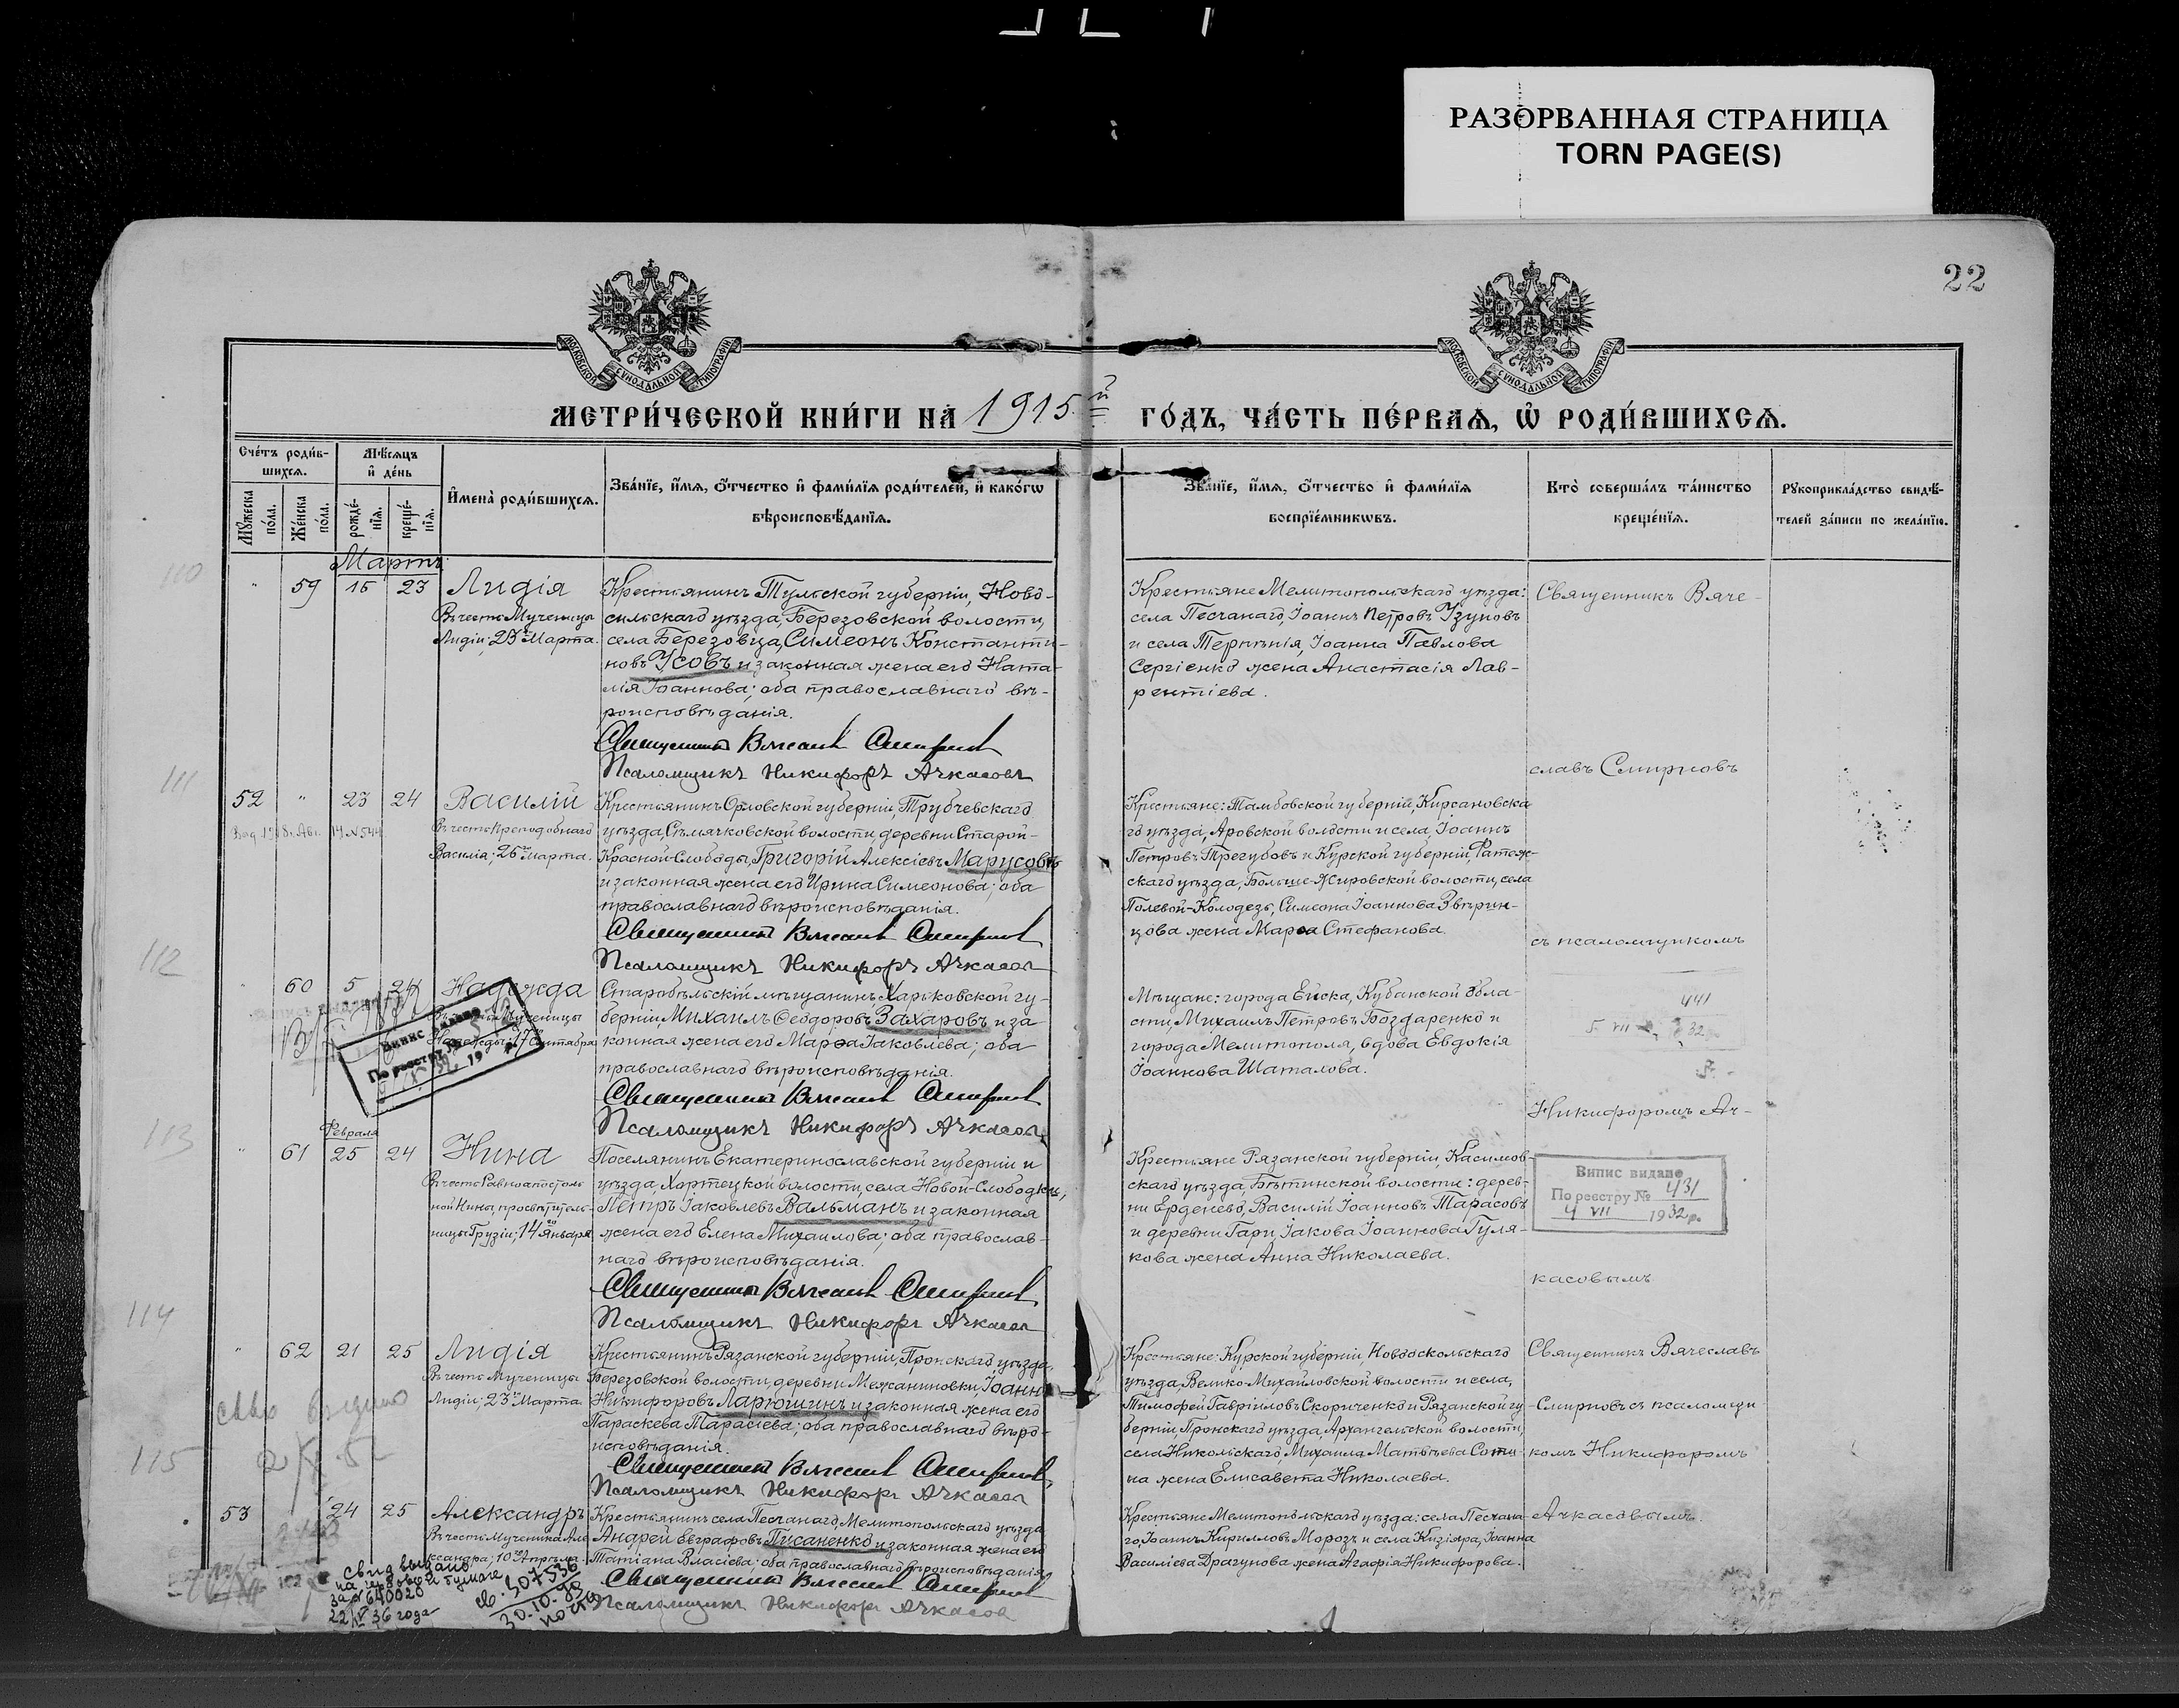 РАЗОРВАННАЯ СТРАНИЦА
TORN PAGE(S)
22
МОСКОВСКОЙ СѴНОДАЛЬНОЙ ТИПОГРАФІИ
МОСКОВСКОЙ СѴНОДАЛЬНОЙ ТИПОГРАФІИ
МЕТРИ́ЧЕСКОЙ КНИ́ГИ НА 1915й ГО́ДЪ, ЧА́СТЬ ПЕ́РВАѦ, Ѡ РОДИ́ВШИХСѦ.
Сче́тъ роди́вшихсѧ.
Мѣ́сѧцъ и де́нь
Мꙋ́жеска по́ла.
Же́нска по́ла.
рожде́нїѧ.
креще́нїѧ.
И҆мена̀ роди́вшихсѧ.
Зва́нїе, и҆́мѧ, ѻ҆́тчество и҆ фами́лїѧ роди́телей, и҆ како́гѡ
вѣроисповѣ́данїѧ.
Зва́нїе, и҆́мѧ, ѻ҆́тчество и҆ фами́лїѧ
воспрїе́мникѡвъ.
Кто̀ соверша́лъ та́инство
креще́нїѧ.
Рꙋкоприкла́дство свидѣ́телей за́писи по жела́нїю.
110
Мартъ
" 59 15 23 Лидія
Въ честь Мученицы
Лидіи; 23го Марта.
Крестьянинъ Тульской губерніи, Ново-
сильскаго уѣзда, Березовской волости,
села Березовца, Симеонъ Константи-
новъ Усовъ и законная жена его Ната-
лія Іоаннова; оба православнаго вѣ-
роисповѣданія.
Священникъ Вячеславъ Смирновъ
Псаломщикъ Никифоръ Ачкасовъ
Крестьяне Мелитопольскаго уѣзда:
села Песчанаго, Іоаннъ Петровъ Узуновъ
и села Терпѣнія, Іоанна Павлова
Сергіенко жена Анастасія Лав-
рентіева.
Священникъ Вяче-
славъ Смирновъ
111
52 " 23 24 Василій
Въ честь Преподобнаго
Василія; 26го Марта.
Крестьянинъ Орловской губерніи, Трубчевскаго
уѣзда, Сѣмячковской волости, деревни Старой-
Красной-Слободы, Григорій Алексіевъ Марусовъ
и законная жена его Ирина Симеонова; оба
православнаго вѣроисповѣданія.
Священникъ Вячеславъ Смирновъ
Псаломщикъ Никифоръ Ачкасовъ
Крестьяне: Тамбовской губерніи, Кирсановска-
го уѣзда, Аровской волости и села, Іоаннъ
Петровъ Трегубовъ и Курской губерніи, Фатеж-
скаго уѣзда, Больше-Жировской волости, села
Полевой-Колодезь, Симеона Іоаннова Звѣрин-
цова жена Марѳа Стефанова.
съ псаломщикомъ
112
" 60 5 24 Надежда
Мученицы
Надежды; 17го Сентября
Випис видано
По реестру №
Старобѣльскій мѣщанинъ, Харьковской гу-
берніи, Михаилъ Ѳеодоровъ Захаровъ и за-
конная жена его Марѳа Іаковлева; оба
православнаго вѣроисповѣданія.
Священникъ Вячеславъ Смирновъ
Псаломщикъ Никифоръ Ачкасовъ
Мѣщане: города Ейска, Кубанской обла-
сти, Михаилъ Петровъ Бондаренко и
города Мелитополя, вдова Евдокія
Іоаннова Шаталова.
441
5 VII 32
Никифоромъ Ач-
113
Февраля
" 61 25 24 Нина
Въ честь Равноапостоль-
ной Нины, просвѣтитель-
ницы Грузіи; 14го Января
Поселянинъ Екатеринославской губерніи и
уѣзда, Хортецкой волости, села Новой-Слободки,
Петръ Іаковлевъ Вальманъ и законная
жена его Елена Михаилова; оба православ-
наго вѣроисповѣданія.
Священникъ Вячеславъ Смирновъ
Псаломщикъ Никифоръ Ачкасовъ
Крестьяне Рязанской губерніи, Касимов-
скаго уѣзда, Бѣтинской волости: дерев-
ни Ерденево, Василій Іоанновъ Тарасовъ
и деревни Гари, Іакова Іоаннова Гуля-
кова жена Анна Николаева.
Випис видано
По реестру № 431
4 VII 1932 р.
касовымъ
114
" 62 21 25 Лидія
Въ честь Мученицы
Лидіи; 23го Марта
Крестьянинъ Рязанской губерніи, Пронскаго уѣзда,
Березовской волости, деревни Межаниновки, Іоаннъ
Никифоровъ Ларюшинъ и законная жена его
Параскева Тарасіева; оба православнаго вѣро-
исповѣданія.
Священникъ Вячеславъ Смирновъ
Псаломщикъ Никифоръ Ачкасовъ
Крестьяне: Курской губерніи, Новооскольскаго
уѣзда, Велико-Михайловской волости и села,
Тимофей Гавріиловъ Скориченко и Рязанской гу-
берніи, Пронскаго уѣзда, Архангельской волости,
села Никольскаго, Михаила Матвѣева Соти-
на жена Елисавета Николаева.
Священникъ Вячеславъ
Смирновъ съ псаломщи-
комъ Никифоромъ
115
53 24 25 Александръ
Въ честь Мученика Але-
ксандра; 10го Апрѣля.
Крестьянинъ села Песчанаго, Мелитопольскаго уѣзда
Андрей Евграфовъ Писаненко и законная жена его
Татіана Власіева; оба православнаго вѣроисповѣданія.
Священникъ Вячеславъ Смирновъ
Псаломщикъ Никифоръ Ачкасовъ
Крестьяне Мелитопольскаго уѣзда: села Песчана-
го, Іоаннъ Кирилловъ Морозъ и села Кизіяра, Іоанна
Василіева Драгунова жена Агафія Никифорова.
Ачкасовымъ.
свид выдано
на гербовой бумаге
за № 640020
22/V 36 года
св. 307536
30.10.